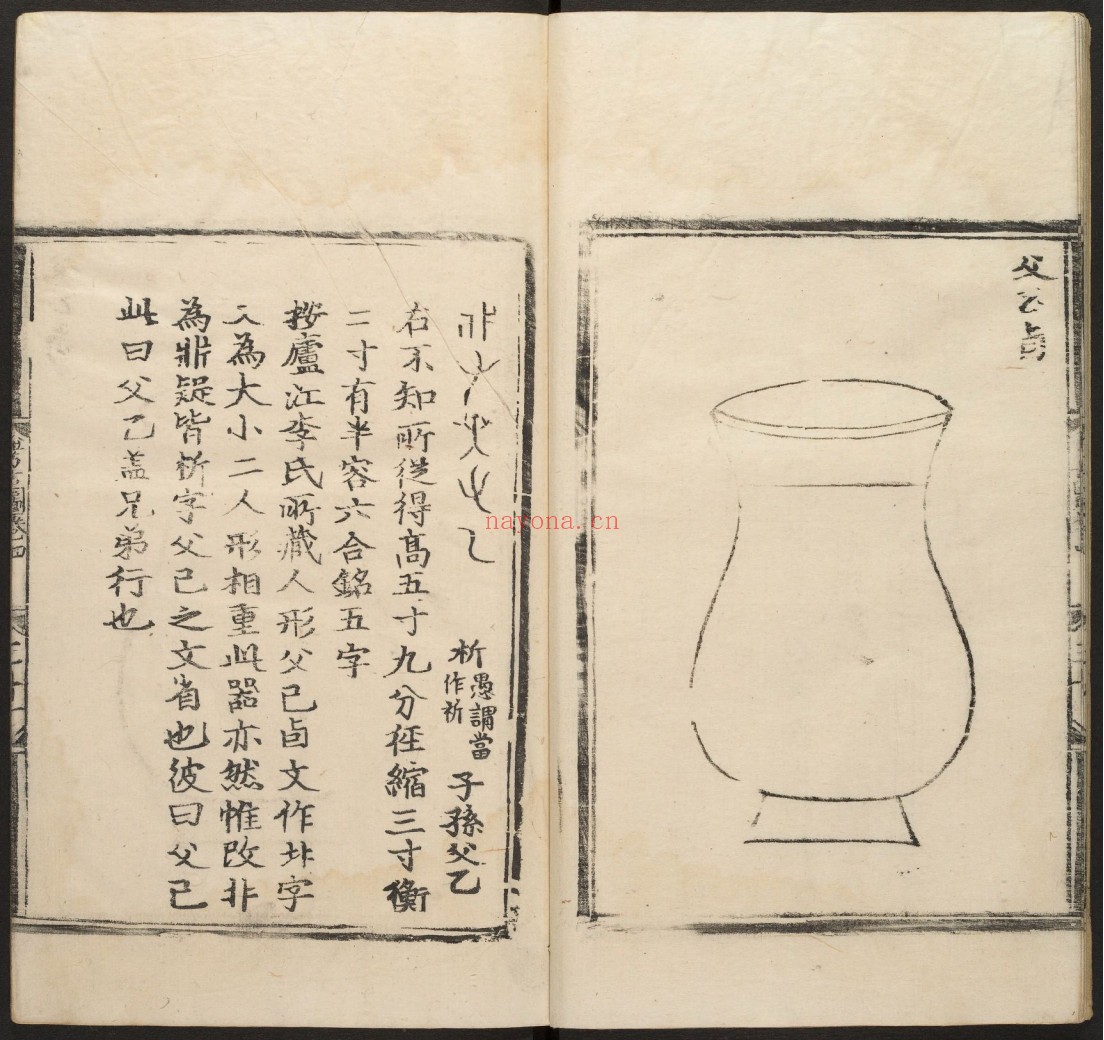 父乙卣
析
愚謂當
作祈
子孫父乙
右不知所從得髙五寸九分徑縮三寸衡
二寸有半容六合銘五字
按廬江李氏所藏人形父己卣文作北字
又為大小二人形相重此器亦然惟改非
為𣂔疑皆析字父己之文省也彼曰父己
此曰父乙盖兄弟行也
考古圖卷四
nayona.cn